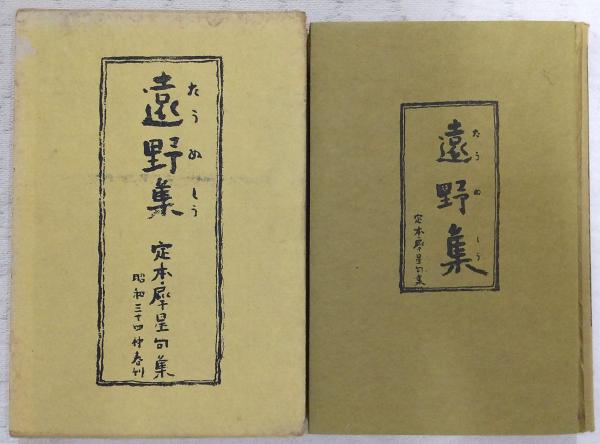 遠野集
たうぬしう
定本・犀星句集
昭和三十四仲春刊
遠野集
たうぬしう
定本・犀星句集